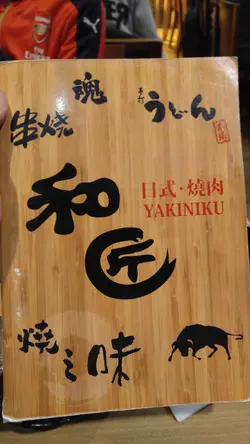 魂
手打
うどん
串焼
和
匠
日式·燒肉
YAKINIKU
燒
之
味